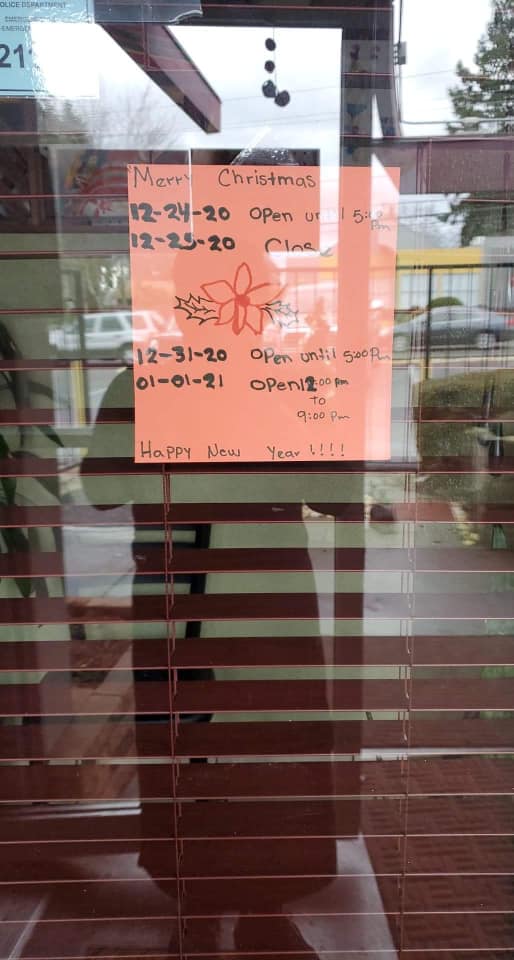 OLICE DEPARTMENT
21
Merry Christmas
12-24-20 Open until 5:00 Pm
12-25-20 Close
12-31-20 Open until 5:00 Pm
01-01-21 Open 12:00 pm
TO
9:00 Pm
Happy New Year !!!!